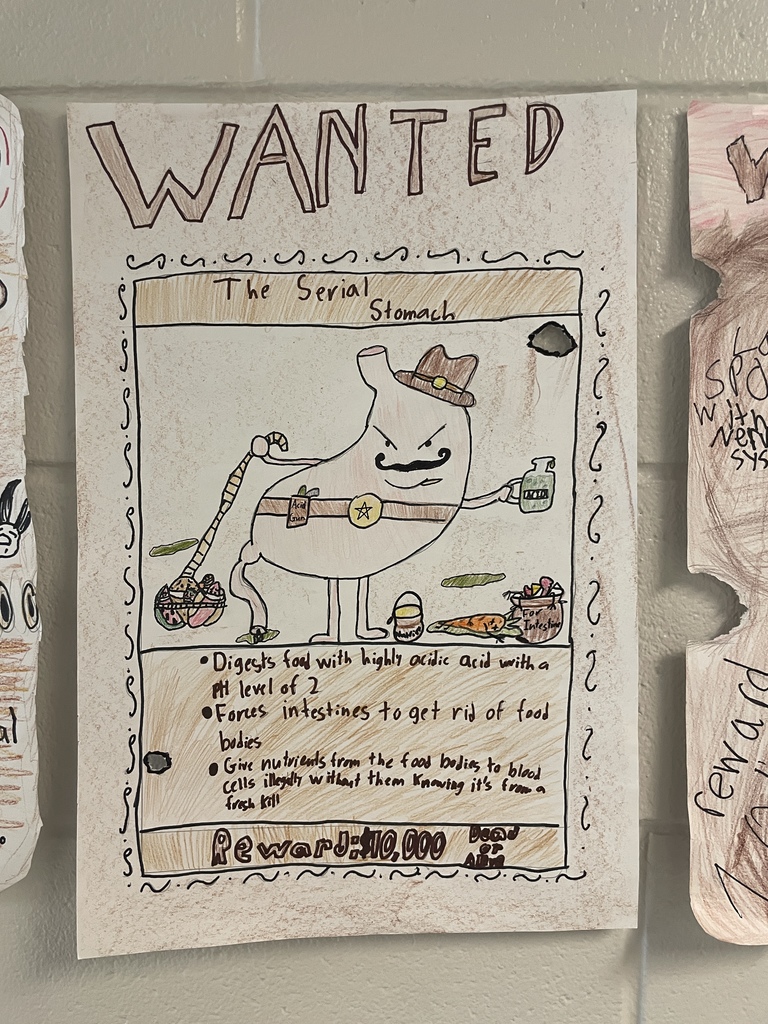 WANTED
The Serial
Stomach
Acid
Gun
ACID
For
Intestine
• Digests food with highly acidic acid with a
PH level of 2
• Forces intestines to get rid of food
bodies
• Give nutrients from the food bodies to blood
cells illegally without them knowing it's from a
fresh kill
Reward:$10,000
Dead
or
Alive
W
SPO
With
Ner
sys
reward
al